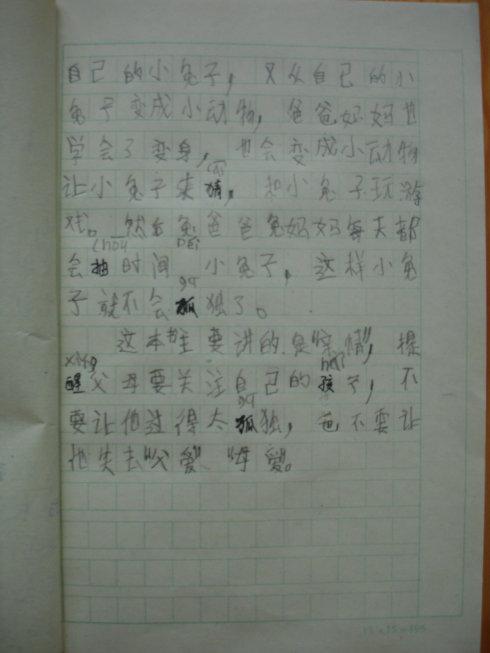 自己的小兔子，又从自己的小
兔子变成小动物，爸爸妈妈也
学会了变身，也会变成小动物
让小兔子来猜，和小兔子玩游
戏。然后兔爸爸兔妈妈每天都
chou
会抽时间 小兔子，这样小兔
gu
子就不会孤独了。
这本书主要讲的是“亲情”，提
xing hai
醒父母要关注自己的孩子，不
gu
要让他过得太孤独，也不要让
他失去“父爱”、“母爱”。